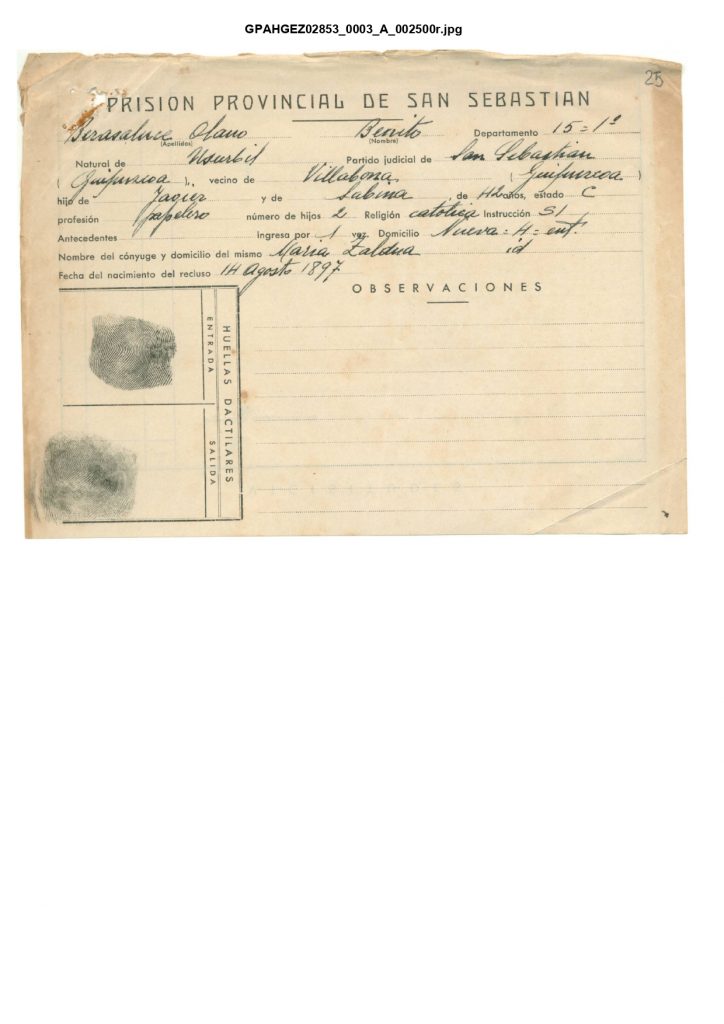 GPAHGEZ02853_0003_A_002500r.jpg
25
PRISION PROVINCIAL DE SAN SEBASTIAN
Berasaluce Olano Benito Departamento 15=1º
(Apellidos) (Nombre)
Natural de Usurbil Partido judicial de San Sebastian
( Guipuzcoa ), vecino de Villabona ( Guipuzcoa )
hijo de Javier y de Sabina, de 42 años, estado C
profesión papelero número de hijos 2 Religión catolica Instrucción SI
Antecedentes Ingresa por 1 vez. Domicilio Nueva=4=ent.
Nombre del cónyuge y domicilio del mismo Maria Zaldua id
Fecha del nacimiento del recluso 14 agosto 1897
OBSERVACIONES
HUELLAS DACTILARES
ENTRADA
SALIDA